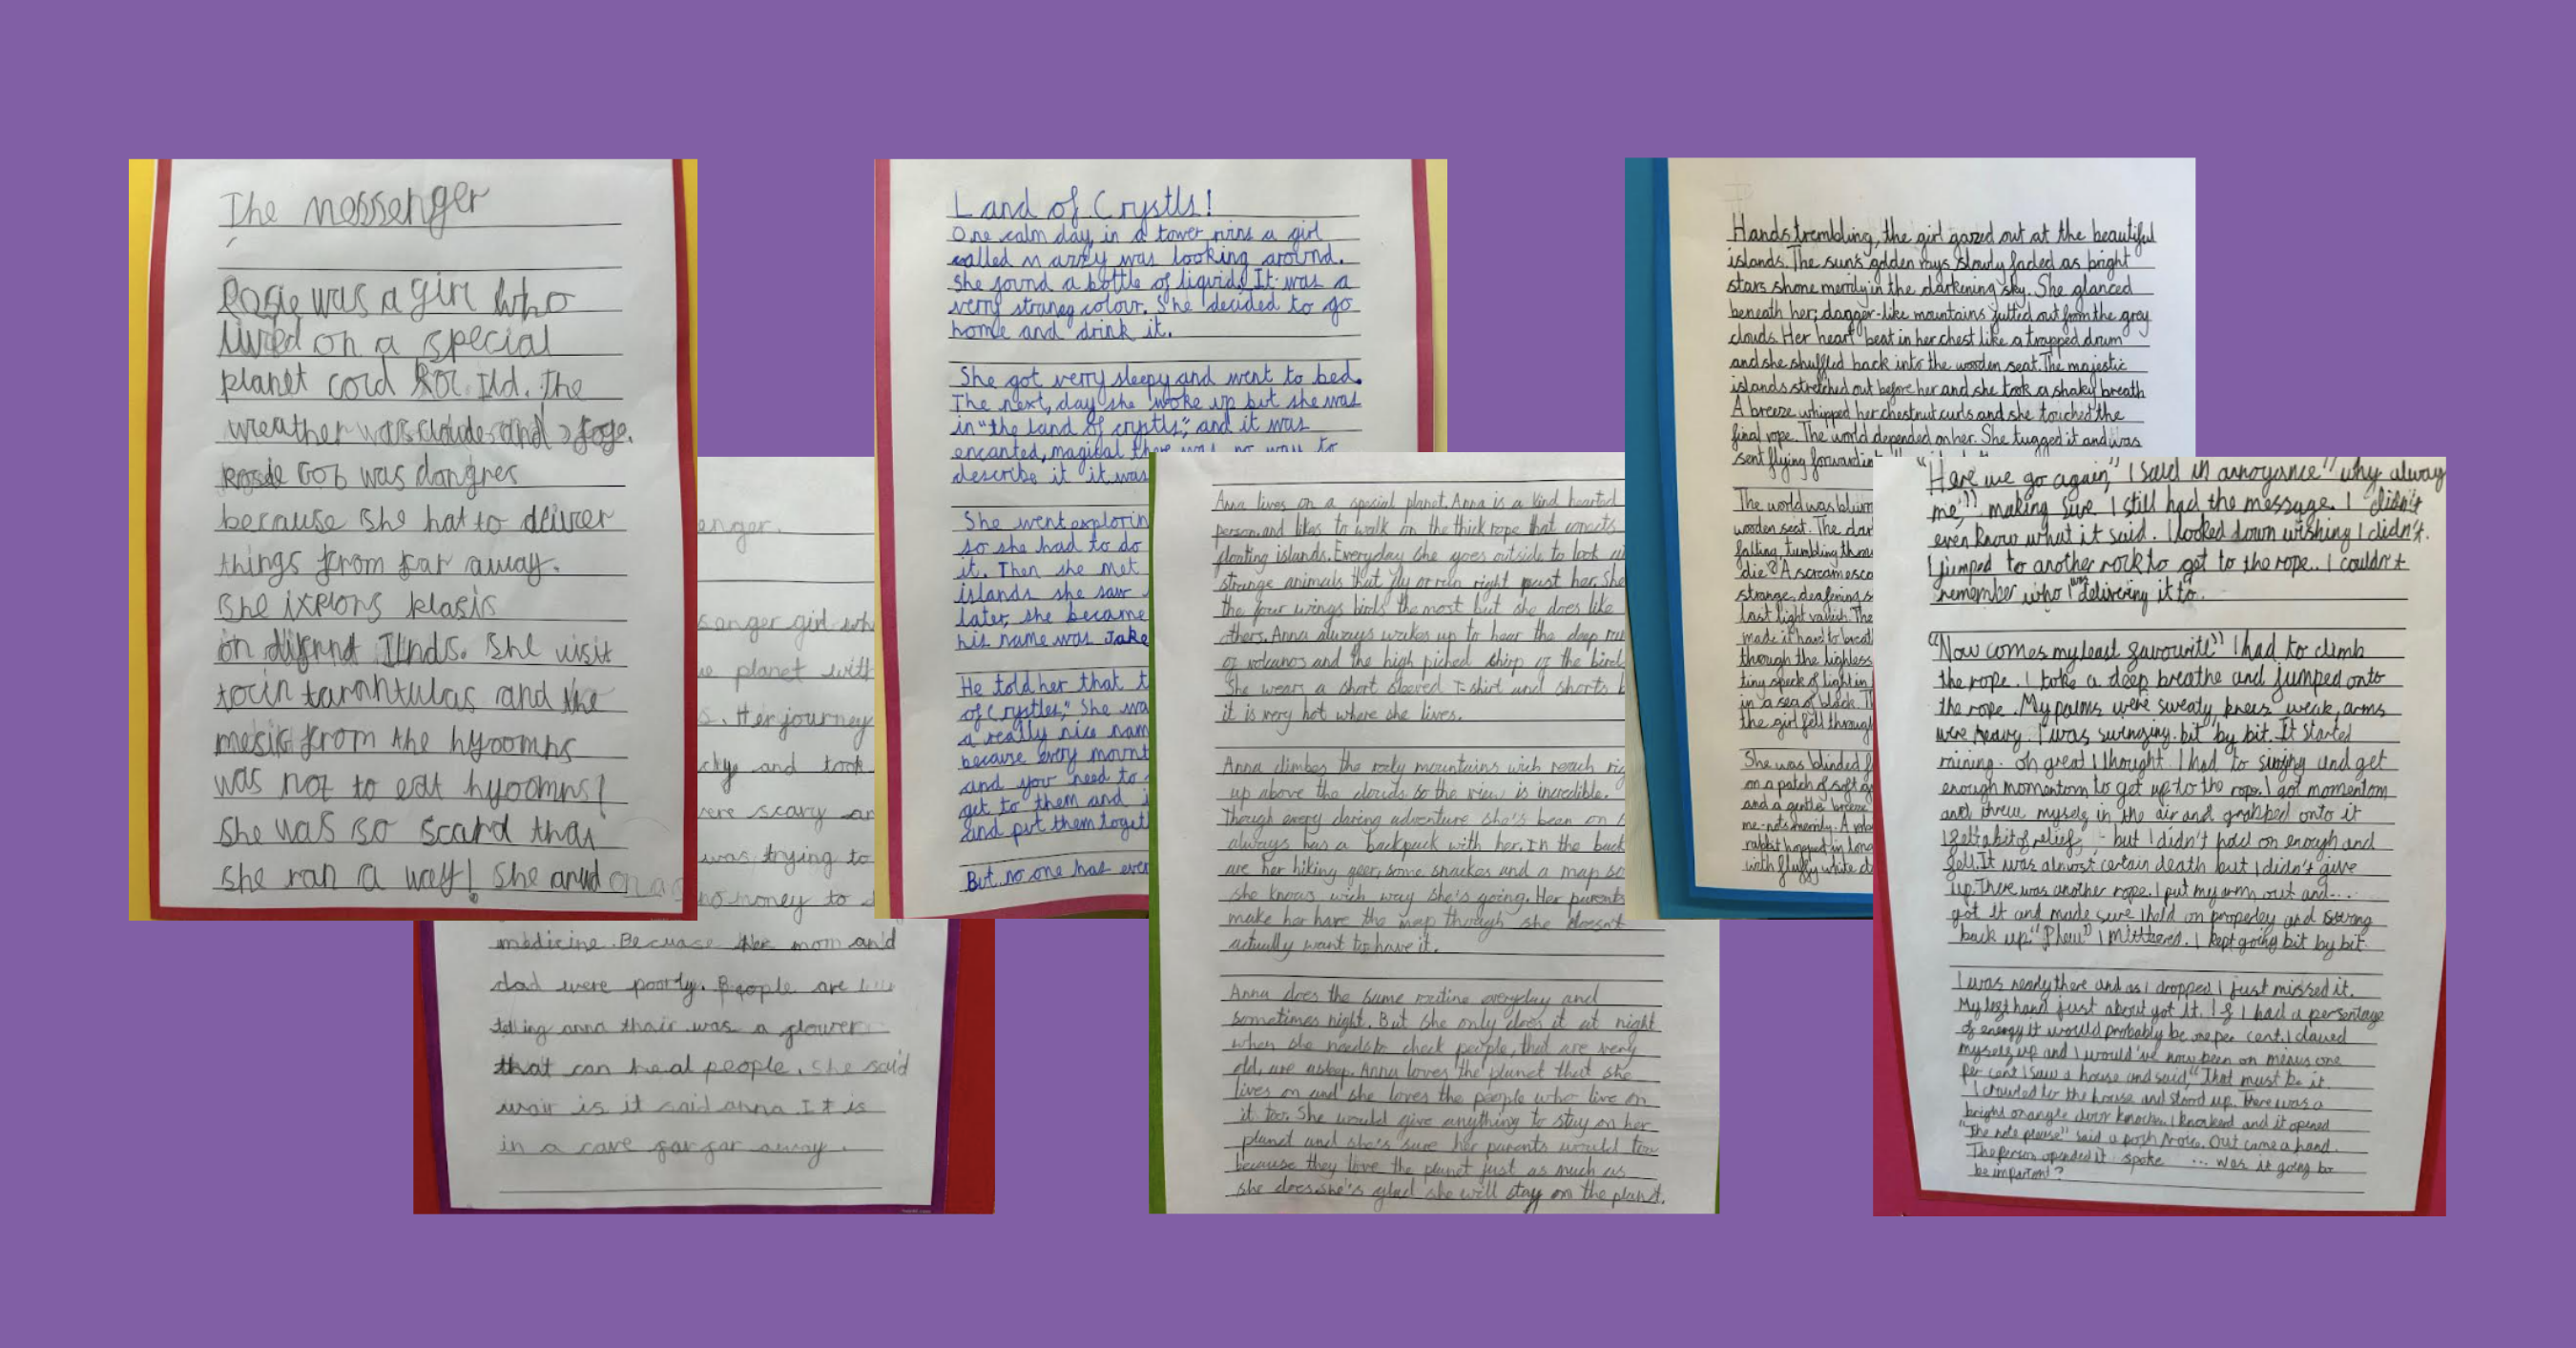 The messenger
Rosie was a girl who
lived on a special
planet cord Ild. The
wreather was cloude and foge.
Gob was dangres
because she hat to deliver
things from far away.
She ixplors klasis
on difrnd Ilnds. She visit
tocin tarnhtulas and the
mesig from the hyoomns
was not to eat hyoomns!
She was so scard that
she ran a way! She
enger.
enger girl wh
planet with
Her journey
cky and took
ere scary an
was trying to
no money to
medicine. Because her mom and
dad were poorly. People are
telling anna thair was a flower
that can heal people. She said
wair is it said anna. It is
in a cave far far away.
Land of Crystls!
One calm day, in a tower riins a girl
called marzy was looking around.
She found a bottle of liquid! It was a
verry straneg colour. She decided to go
home and drink it.
She got verry sleepy and went to bed.
The next, day she woke up but she was
in "the land of crystls", and it was
encanted, magical there was no way to
describe it it was
She went explorin
so she had to do
it. Then she met
islands she saw
later, she became
his name was Jake
He told her that t
of Crystles," She wa
a really nice nam
because every mount
and you need to
get to them and i
and put them toget
But no one has ever
Anna lives on a special planet. Anna is a kind hearted
person and likes to walk on the thick rope that conects
floating islands. Everyday she goes outside to look at
strange animals that fly or run right past her. She
the four wings birds the most but she does like
others. Anna always wakes up to hear the deep
of volcanos and the high piched chirp of the bird
She wears a short sleeved T-shirt and shorts b
it is very hot where she lives.
Anna climbes the rocky mountains wich reach rig
up above the clouds so the view is incredible.
Though every daring adventure she's been on s
always has a backpack with her. In the back
are her hiking geer, some snackes and a map so
she knows wich way she's going. Her parents
make her have the map though she doesn't
actually want to have it.
Anna does the same routine everyday and
sometimes night. But she only does it at night
when she needs to check people, that are very
old, are asleep. Anna loves the planet that she
lives on and she loves the people who live on
it too. She would give anything to stay on her
planet and she's sure her parents would too
because they love the planet just as much as
she does. she's glad she will stay on the planet.
Hands trembling, the girl gazed out at the beautiful
islands. The sun's golden rays slowly faded as bright
stars shone merrily in the darkening sky. She glanced
beneath her; danger-like mountains jutted out from the grey
clouds. Her heart beat in her chest like a trapped drum
and she shuffled back into the wooden seat. The majestic
islands stretched out before her and she took a shaky breath
A breeze whipped her chestnut curls and she touched the
final rope. The world depended on her. She tugged it and was
sent flying forward in
The world was blurr
wooden seat. The dar
falling, tumbling throu
die? A scream esca
strange, deafening s
last light vanish. The
made it hard to breat
through the lightless
tiny speck of light in
in a sea of black. T
the girl fell throug
She was blinded
on a patch of soft g
and a gentle breeze
me-nots merrily. A
rabbit hopped in long
with fluffy white
"Here we go again," I said in annoyance "why alway
me"!! making sure I still had the message. I didn't
even know what it said. I looked down wishing I didn't.
I jumped to another rock to get to the rope. I couldn't
remember who I was delivering it to.
"Now comes my least favourite" I had to climb
the rope. I toke a deep breathe and jumped onto
the rope. My palms were sweaty, knees weak, arms
were heavy. I was swinging bit by bit. It started
raining. oh great I thought. I had to singing and get
enough momentom to get up to the rope. I got momentom
and threw myself in the air and grabbed onto it
I felt a bit of relief - but I didn't hold on enough and
fell. It was almost certain death but I didn't give
up. There was another rope. I put my arm out and....
got it and made sure I held on properley and swung
back up. "Phew" I mittered. I kept going bit by bit.
I was nearly there and as I dropped I just missed it.
My last hand just about got it. If I had a persentage
of energy it would probably be one per cent. I clawed
myself up and I would've now been on menus one
per cent I saw a house and said, "That must be it
I crawled to the house and stood up. There was a
bright orangle door knocker. I knocked and it opened
"The note please" said a posh voice. Out came a hand.
The person opended it spoke ... was it going to
be important?